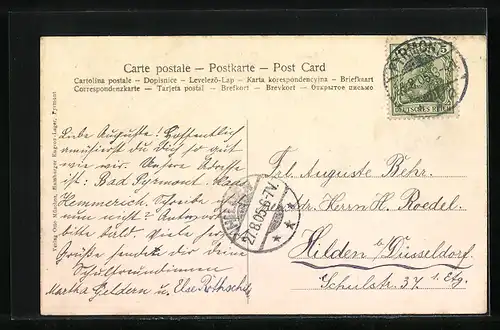 Carte postale — Postkarte — Post Card
Cartolina postale – Dopisnice – Levelező-Lap – Karta korespondencyjna – Briefkaart
Correspondenzkarte – Tarjeta postal – Brefkort – Brevkort – Открытое письмо
PYRMONT
5
DEUTSCHES REICH
27.8.05.6-7V.
Liebe Auguste! Hoffentlich
amüsierst du dich so gut
wie wir. Unsere Adresse
ist: Bad Pyrmont.
Hemmerich. Schreibe
nun nicht? Antworte
bitte bald. Viele
Grüße sendet dir deine
Schulfreundinnen
Martha Geldern u. Else Rothschild
Frl. Auguste Behr.
Adr. Herrn H. Roedel.
Hilden b/Düsseldorf.
Schulstr. 37 1. Etg.
Verlag Otto München, Hamburger Engros-Lager, Pyrmont